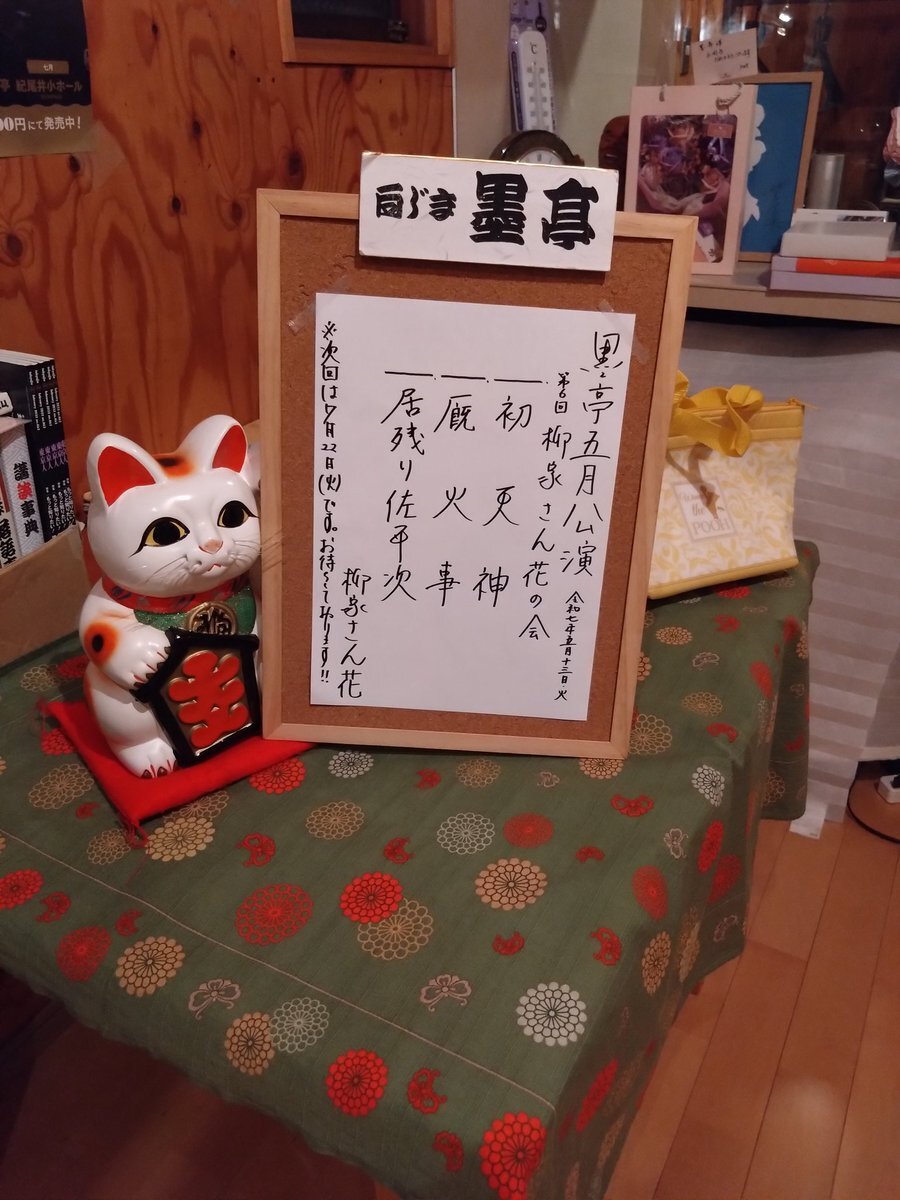 向じま 墨亭
墨亭五月公演
令和七年五月十三日・火
第6回 柳家さん花の会
一、初天神
一、厩火事
一、居残り佐平次
柳家さん花
※次回は7月22日(火)です。お待ちしております!!
七月
亭 紀尾井小ホール
00円にて発売中!
講談事典
the
POOH